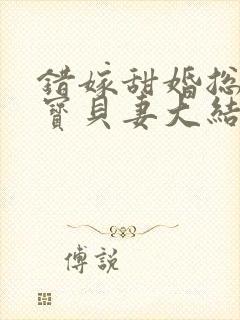 錯嫁甜婚總
寶貝妻大結
傅說